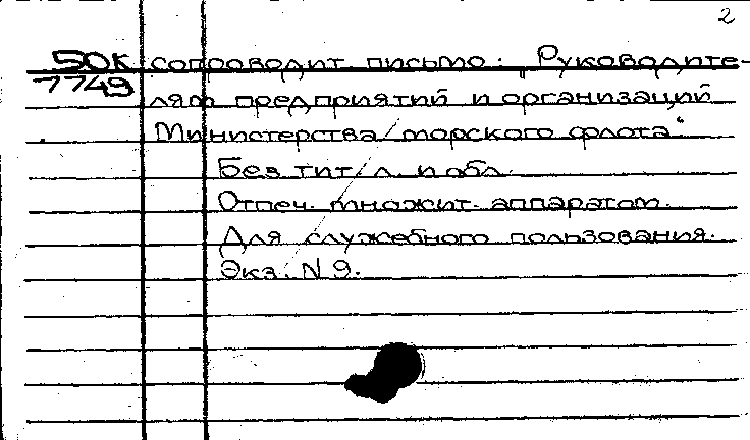 2
50к сопроводит. письмо: „Руководите-
7749 лям предприятий и организаций
Министерства морского флота“
Без тит. л. и обл.
Отпеч. множит. аппаратом.
Для служебного пользования.
Экз. N 9.